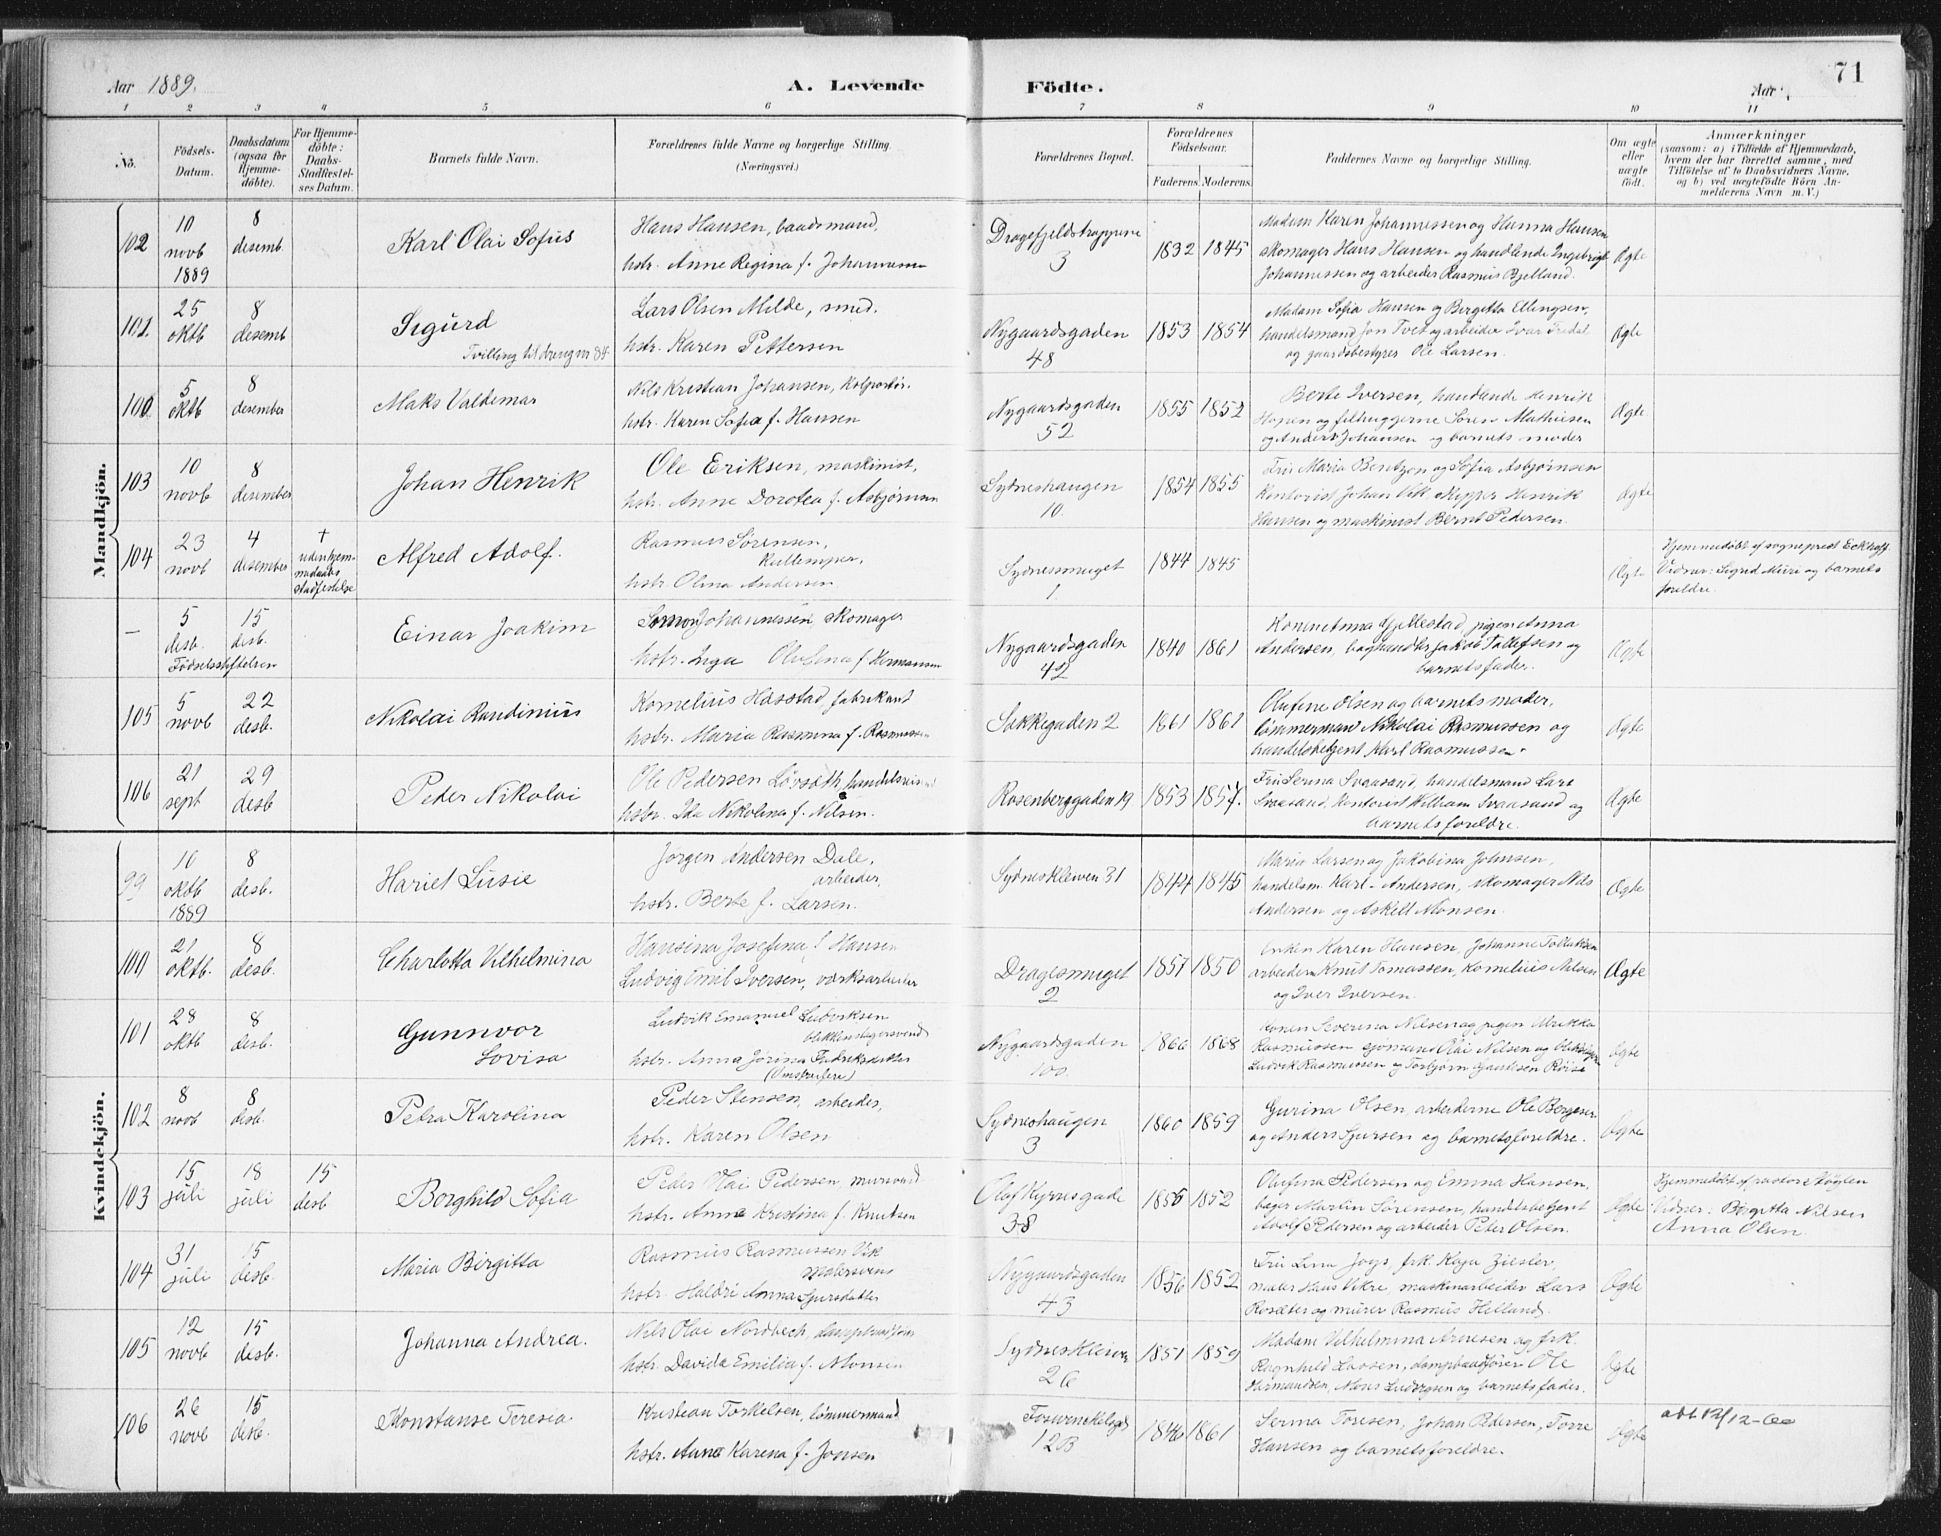 71
Aar 1889. A. Levende Födte. Aar
1 2 3 4 5 6 7 8 9 10 11
No. Födsels-Datum. Daabsdatum (ogsaa for Hjemmedöbte). For Hjemmedöbte: Daabs-Stadfæstelses Datum. Barnets fulde Navn. Forældrenes fulde Navne og borgerlige Stilling. (Næringsvei.) Forældrenes Bopæl. Forældrenes Födselsaar. Faderens. Moderens. Faddernes Navne og borgerlige Stilling. Om ægte eller uægte födt. Anmærkninger (saasom: a) i Tilfælde af Hjemmedaab, hvem der har forrettet samme, med Tilföielse af to Daabsvidners Navne, og b) ved uægtefödte Börn Anmelderens Navn m. V.)
Mandkjön.
102 10 novb 1889 8 desemb. Karl Olai Sofus Hans Hansen, baadsmand, hstr. Anne Regina f. Johannesen Dragefjeldstrappene 3 1832 1845 Madam Karen Johannessen og Hanna Hansen skomager Hans Hansen og handlende Ingebrigt Johannessen og arbeider Rasmus Bjelland. Ægte
101. 25 oktb 8 desemb Sigurd Tvilling til dreng nr 84. Lars Olsen Milde, smed. hstr. Karen Pettersen Nygaardsgaden 48 1853 1854 Madam Sofia Hansen og Birgitta Ellingsen, handelsmand Jon Tvet og arbeider Ivar og gaardsbestyrer Ole Larsen. Ægte
100. 5 oktb 8 desember Maks Valdemar Nils Kristian Johansen, kolportör. hstr. Karen Sofia f. Hansen Nygaardsgaden 52 1855 1852 Berte Iversen, handlende Henrik Hopen og filhuggerne Sören Mathiesen og Anders Johansen og barnets moder Ægte
103 10 novb 8 desember Johan Henrik Ole Eriksen, maskinist, hstr. Anne Dorotea f. Asbjörnsen Sydneshaugen 10. 1854 1855 Fru Maria Bentzon og Sofia Asbjörnsen kontorist Johan Vik skipper Henrik Hansen og maskinist Bernt Pedersen. Ægte
104 23 novb 4 desember † uden hjemmedaabs stadfestelse Alfred Adolf. Rasmus Sörensen, kullemper, hstr. Olina Andersen Sydnessmuget 1. 1844 1845 Ægte Hjemmedöbt af sogneprest Eckhoff Vidner: Sigrid Muri og barnets foreldre.
— 5 desb. Födselsstiftelsen 15 desb. Einar Joakim Simon Johannessen skomager hstr. Inga Olufina f. Hermansen Nygaardsgaden 42 1840 1861 Konen Anna Gjellestad, pigen Anna Andersen, boghandler Jakob Tollefsen og barnets fader. Ægte
105 5 novb 22 desb. Nikolai Randinius Kornelius Hasstad fabrikant hstr. Maria Rasmina f. Rasmussen Sekkegaden 2 1861 1861 Olufine Olsen og barnets moder, tömmermand Nikolai Rasmussen og handelsbetjent Karl Rasmussen. Ægte
106 21 sept 29 desb Peder Nikolai Ole Pedersen Lövseth, handelsreisend hstr. Ida Nikolina f. Nilsen. Rosenberggaden 19 1853 1857. Fru Serina Svaasand, handelsmand Lars Svaasand, kontorist Wilhelm Svaasand og barnets foreldre. Ægte
Kvindekjön.
99 10 oktb 1889 8 desb. Hariet Lusie Jörgen Andersen Dale, arbeider, hstr. Berte f. Larsen. Sydneskleven 31 1844 1845 Maria Larsen og Jakobina Johnsen, handelsm. Karl Andersen, skomager Nils Andersen og Askell Monsen. Ægte
100 21 oktb. 8 desb. Charlotta Vilhelmina Hansina Josefina f. Hansen Ludvig Emil Iversen, verksarbeider Dragesmuget 2 1857 1850 Enken Karen Hansen, Johanne Tollaksen arbeiderne Knut Tomassen, Kornelius Nilsen og Iver Iversen. Ægte
101 28 oktb 8 desb. Gunnvor Lovisa Ludvik Emanuel Ludviksen blikkenslagersvend hstr. Anna Jörina Fredriksdatter Nygaardsgaden 100 1866 1868 Konen Severina Nilsen og pigen Ulrikka Rasmussen sjömand Olai Nilsen og Ludvik Rasmussen og Torbjörn Ægte
102 8 novb 8 desb. Petra Karolina Peder Stensen, arbeider, hstr. Karen Olsen Sydneshaugen 3 1860 1859 Gurina Olsen, arbeiderne Ole Bergesen og Anders Sjursen og barnets foreldre. Ægte
103 15 juli 18 juli 15 desb Borghild Sofia Peder Olai Pedersen, mursvend hstr. Anna Kristina f. Knutsen Olaf Kyrresgade 38 1855 1852 Olufina Pedersen og Emma Hansen, bager Martin Sörensen, handelsbetjent Adolf Pedersen og arbeider Peter Olsen. Ægte Hjemmedöbt af pastor Skoglen Vidner: Birgitta Nilsen Anna Olsen.
104 31 juli 15 desb. Maria Birgitta Rasmus Rasmussen Vik malersvend hstr. Haldri Anna Sjursdatter Nygaardsgaden 43 1856 1852 Fru Lina Joys, frk. Kaja Ziesler, maler Hans Vikre, maskinarbeider Lars Rosæter og murer Rasmus Helland. Ægte
105 12 novb 15 desb. Johanna Andrea. Nils Olai Nordbech, dampbaadförer hstr. Davida Emilia f. Monsen Sydneskleven 26 1851 1859 Madam Vilhelmina Arnesen og frk. Ragnhild Lassen, dampbaadförer Ole Hermandsen, Mons Ludvigsen og barnets fader. Ægte
106 26 novb 15 desb. Konstanse Teresia. Kristian Torkelsen, tömmermand hstr. Anne Karena f. Jonsen Fosvinckelsgd 12B 1846 1861 Serina Toresen, Johan Pedersen, Torre Hansen og barnets foreldre. Ægte att 12/12-60